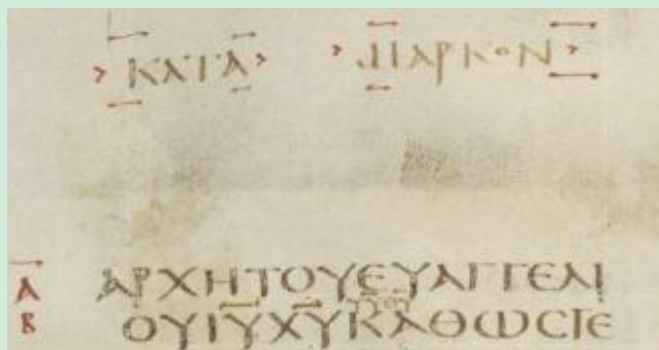 ΚΑΤΑ ΜΑΡΚΟΝ
Α ΑΡΧΗΤΟΥΕΥΑΓΓΕΛΙ
Β ΟΥΙΥΧΥΚΑΘΩϹΓΕ